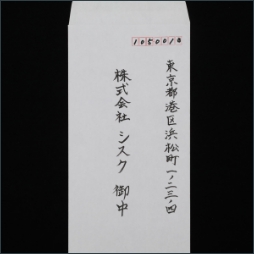 1050018
東京都港区浜松町一ノ二三ノ四
株式会社 シスク 御中